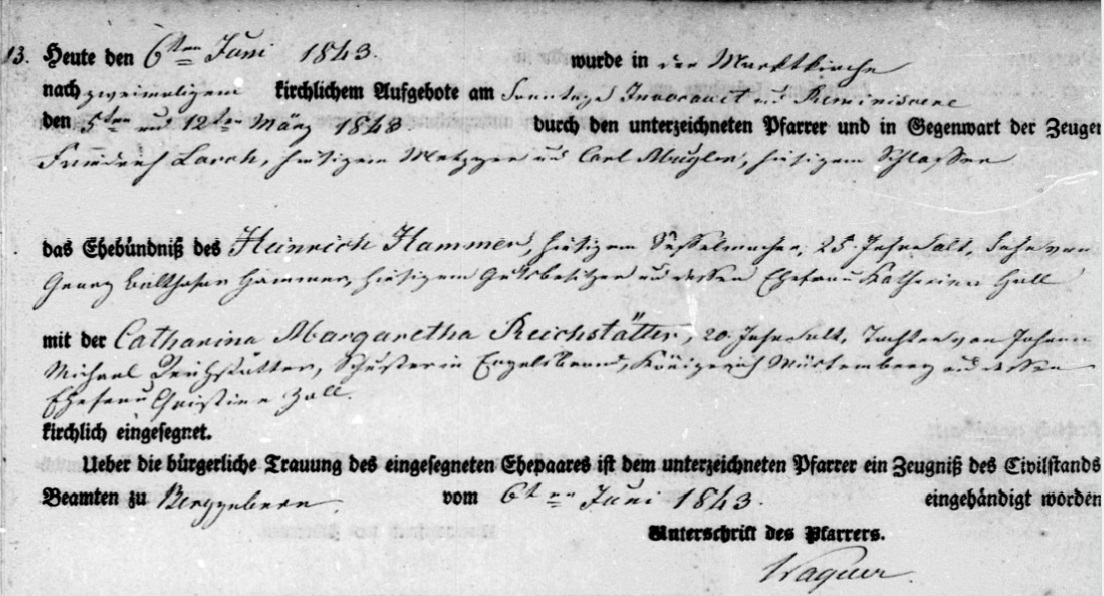 13. Heute den 6ten Juni 1843. wurde in der Marktkirche
nach zweimaligem kirchlichem Aufgebote am Sonntage Invocavit und Reminiscere
den 5ten und 12ten März 1843 durch den unterzeichneten Pfarrer und in Gegenwart der Zeugen
Friedrich Lorch, hiesigem Metzger und Carl Mugler, hiesigem Schlosser
das Ehebündniß des Heinrich Hammer, hiesigem Sesselmacher, 25 Jahre alt, Sohn von
Georg Balthasar Hammer, hiesigem Gutsbesitzer und dessen Ehefrau Katharina Holl
mit der Catharina Margaretha Reichstätter, 20 Jahre alt, Tochter von Johann
Michael Reichstätter, Schuster in Engelsbrand, Königreich Würtemberg und dessen
Ehefrau Christine Zoll.
kirchlich eingesegnet.
Ueber die bürgerliche Trauung des eingesegneten Ehepaares ist dem unterzeichneten Pfarrer ein Zeugniß des Civilstands
Beamten zu Bergzabern vom 6ten Juni 1843. eingehändigt worden
Unterschrift des Pfarrers.
Wagner